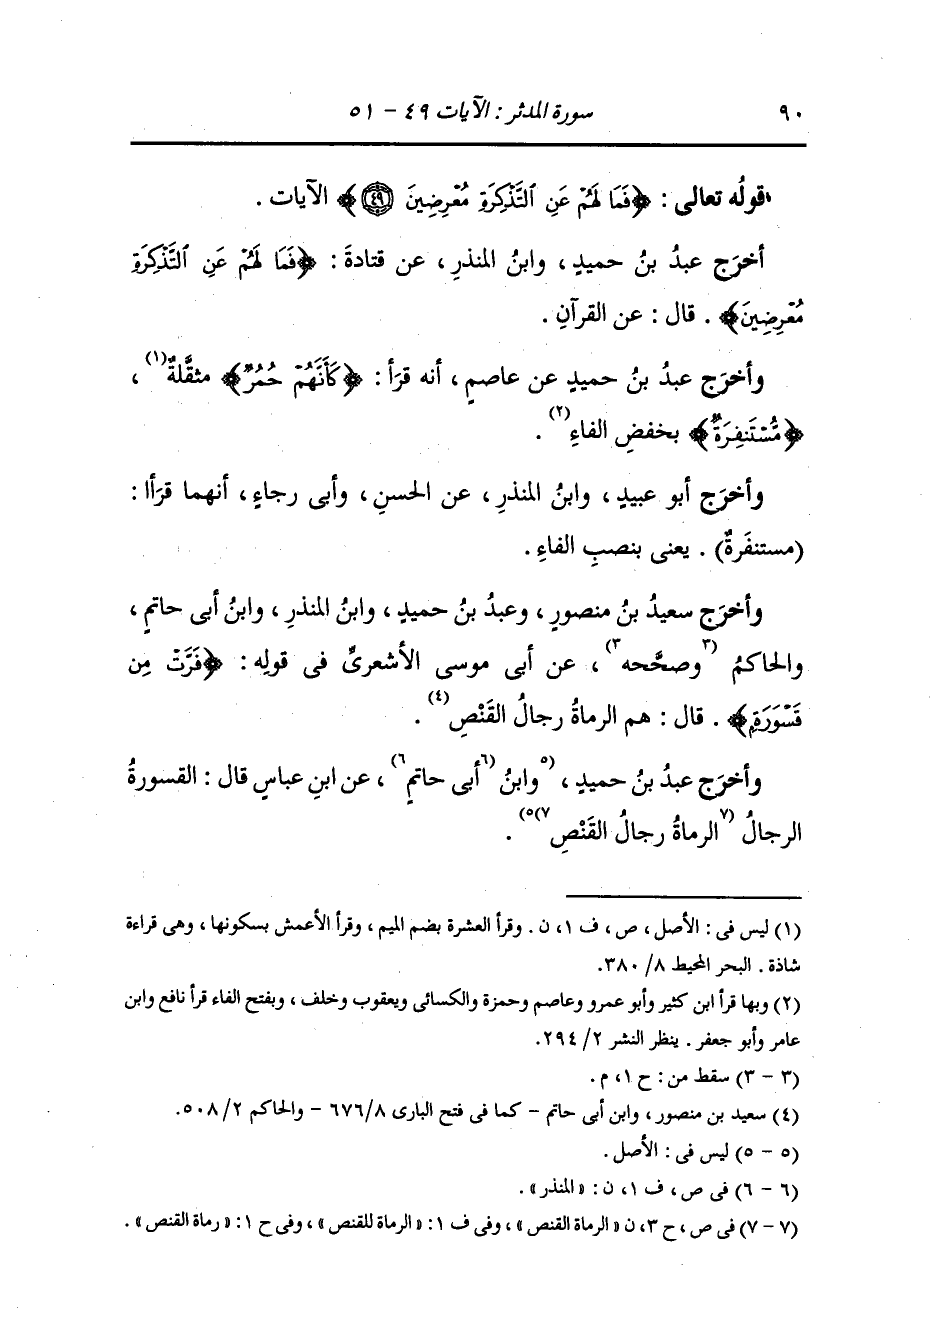 ٩٠ سورة المدثر : الآيات ٤٩ - ٥١
قولُه تعالى : ﴿فَمَا لَهُمْ عَنِ ٱلتَّذْكِرَةِ مُعْرِضِينَ ﴿٤٩﴾﴾ الآيات .
أخرَج عبدُ بنُ حميدٍ ، وابنُ المنذرِ ، عن قتادةَ : ﴿فَمَا لَهُمْ عَنِ ٱلتَّذْكِرَةِ
مُعْرِضِينَ﴾ . قال : عن القرآنِ .
وأخرَج عبدُ بنُ حميدٍ عن عاصمٍ ، أنه قرَأ : ﴿كَأَنَّهُمْ حُمُرٌ﴾ مثقَّلةٌ(١) ،
﴿مُّسْتَنفِرَةٌ﴾ بخفضِ الفاءِ(٢) .
وأخرَج أبو عبيدٍ ، وابنُ المنذرِ ، عن الحسنِ ، وأبى رجاءٍ ، أنهما قرَأا :
(مستنفَرةٌ) . يعنى بنصبِ الفاءِ .
وأخرَج سعيدُ بنُ منصورٍ ، وعبدُ بنُ حميدٍ ، وابنُ المنذرِ ، وابنُ أبى حاتمٍ ،
والحاكمُ (٣وصحَّحه٣) ، عن أبى موسى الأشعرىِّ فى قولِه : ﴿فَرَّتْ مِن
قَسْوَرَةٍ﴾ . قال : هم الرماةُ رجالُ القَنْصِ(٤) .
وأخرَج عبدُ بنُ حميدٍ ، (٥وابنُ (٦أبى حاتمٍ٦) ، عن ابنِ عباسٍ قال : القسورةُ
الرجالُ (٧الرماةُ رجالُ القَنْصِ٧)٥) .
(١) ليس فى : الأصل ، ص ، ف ١ ، ن . وقرأ العشرة بضم الميم ، وقرأ الأعمش بسكونها ، وهى قراءة
شاذة . البحر المحيط ٨/ ٣٨٠.
(٢) وبها قرأ ابن كثير وأبو عمرو وعاصم وحمزة والكسائى ويعقوب وخلف ، وبفتح الفاء قرأ نافع وابن
عامر وأبو جعفر . ينظر النشر ٢/ ٢٩٤.
(٣ - ٣) سقط من : ح ١ ، م .
(٤) سعيد بن منصور ، وابن أبى حاتم - كما فى فتح البارى ٦٧٦/٨ - والحاكم ٥٠٨/٢.
(٥ - ٥) ليس فى : الأصل .
(٦ - ٦) فى ص ، ف ١ ، ن : « المنذر » .
(٧ - ٧) فى ص ، ح ٣ ، ن « الرماة القنص » ، وفى ف ١ : « الرماة للقنص » ، وفى ح ١ : « رماة القنص » .